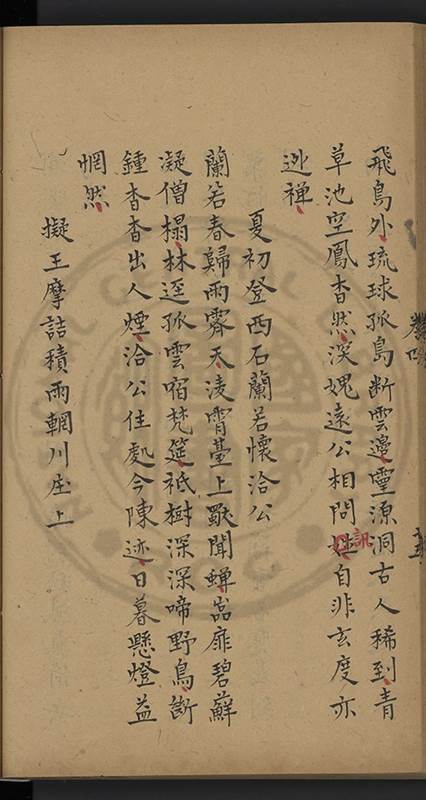 飛鳥外琉球孤島断雲邊靈源洞古人稀到青
草池空鳳杳然深媿遠公相問訊自非玄度亦
逃禅
夏初登西石蘭若懷洽公
蘭若春歸雨霽天淩霄臺上歇聞蟬嵓扉碧蘚
凝僧榻林逕孤雲宿梵筵祇樹深深啼野鳥斷
鍾杳杳出人煙洽公住處今陳迹日暮懸燈益
惘然
擬王摩詰積雨輞川庄上